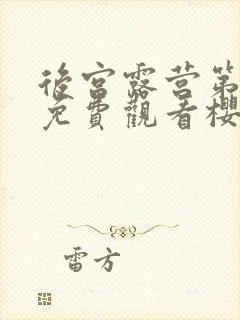 後宮露营第
免費觀看櫻
雷方